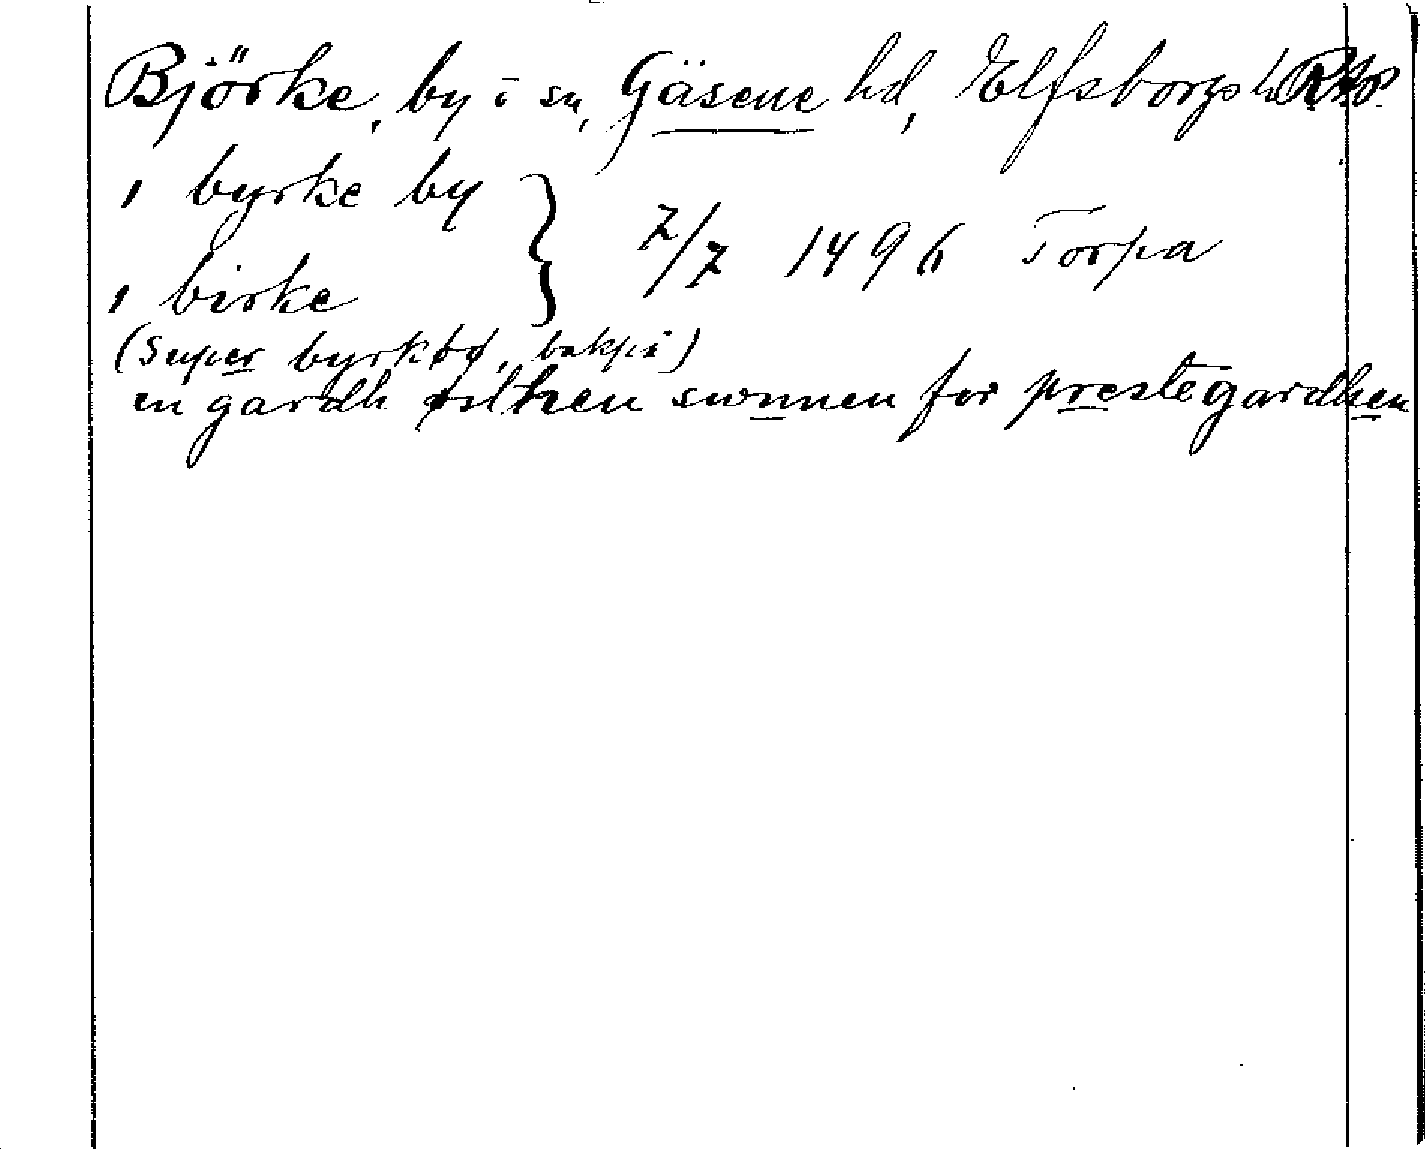 Björke, by i sn, Gäsene hd, Elfsborgs l. RAp.
i byrke by
i birke } 7/7 1496 Torpa
(Super byrkbø, bakpå)
en gardh østhen swnnen for prestegardhen